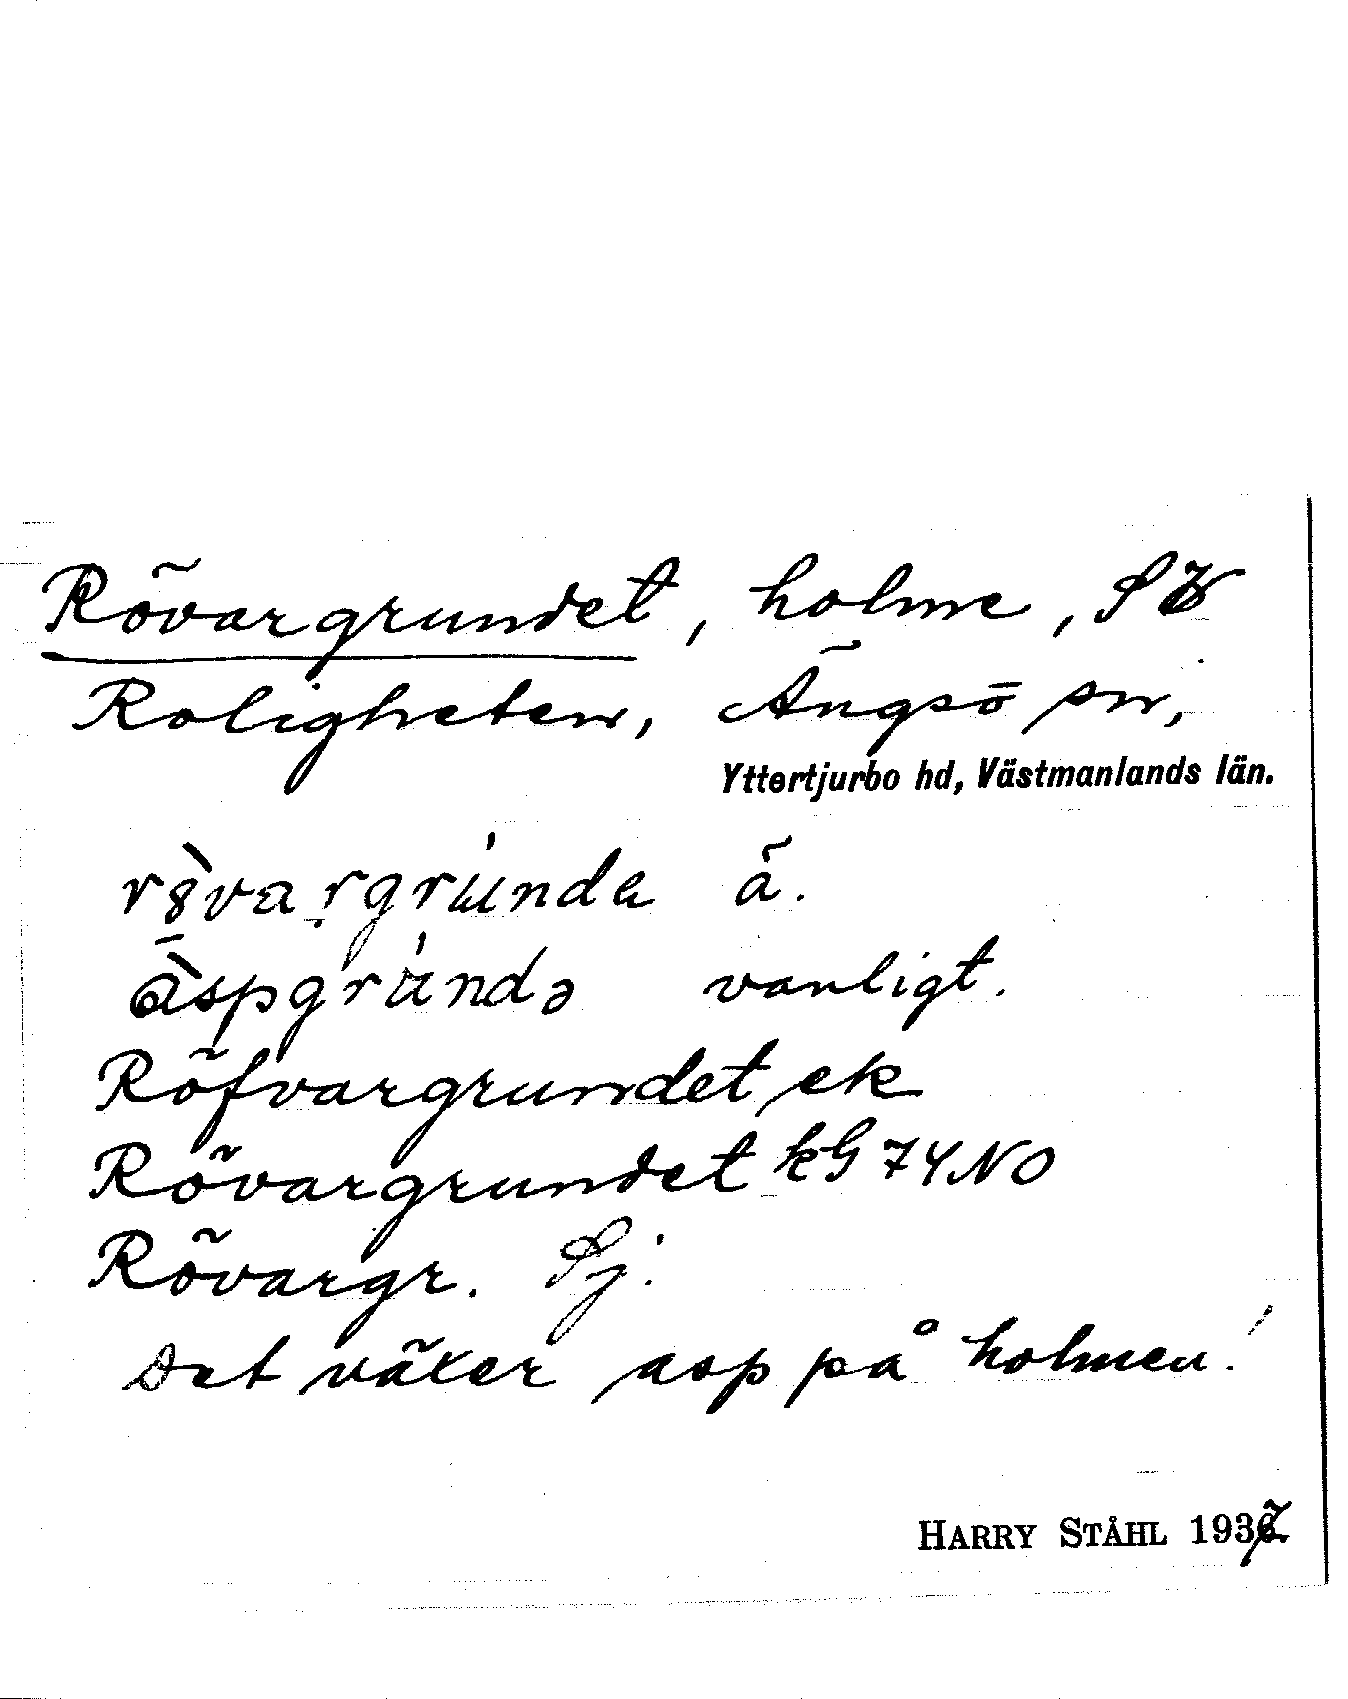 Rövargrundet, holme, SV
Roligheten, Ängsö sn,
Yttertjurbo hd, Västmanlands län.
ä.
vanligt.
Röfvargrundet ek
Rövargrundet kG 74 NO
Rövargr. Sj.
Det växer asp på holmen!
HARRY STÅHL 1937